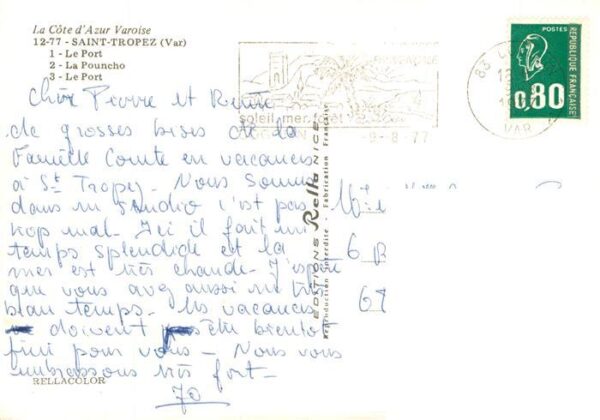 La Côte d'Azur Varoise
12-77 - SAINT-TROPEZ (Var)
1 - Le Port
2 - La Pouncho
3 - Le Port
Chère Pierre et Renée
de grosses bises de la
Famille Comte en vacances
à St Tropez - Nous sommes
dans un studio c'est pas
trop mal - Ici il fait un
temps splendide et la
mer est très chaude - J'espère
que vous avez aussi un très
beau temps - Les vacances
doivent être bientôt
fini pour vous - Nous vous
embrassons très fort -
JO
RELLACOLOR
EDITIONS Rella NICE
Reproduction Interdite - Fabrication Française
soleil, mer, forêt
9-8-77
83
VAR
POSTES
REPUBLIQUE FRANÇAISE
0,80
6